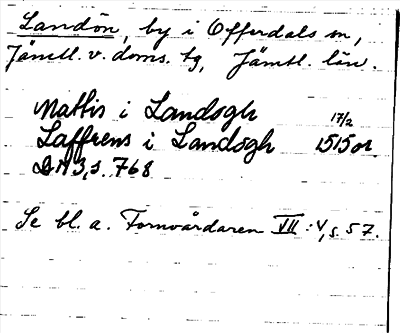 Landön, by i Offerdals sn,
Jämtl. v. doms. tg, Jämtl. län.
Mattis i Landsogh 17/2
Laffrens i Landsogh 1515 or.
DN 3, s. 768
Se bl. a. Fornvårdaren VII:4, s. 57.